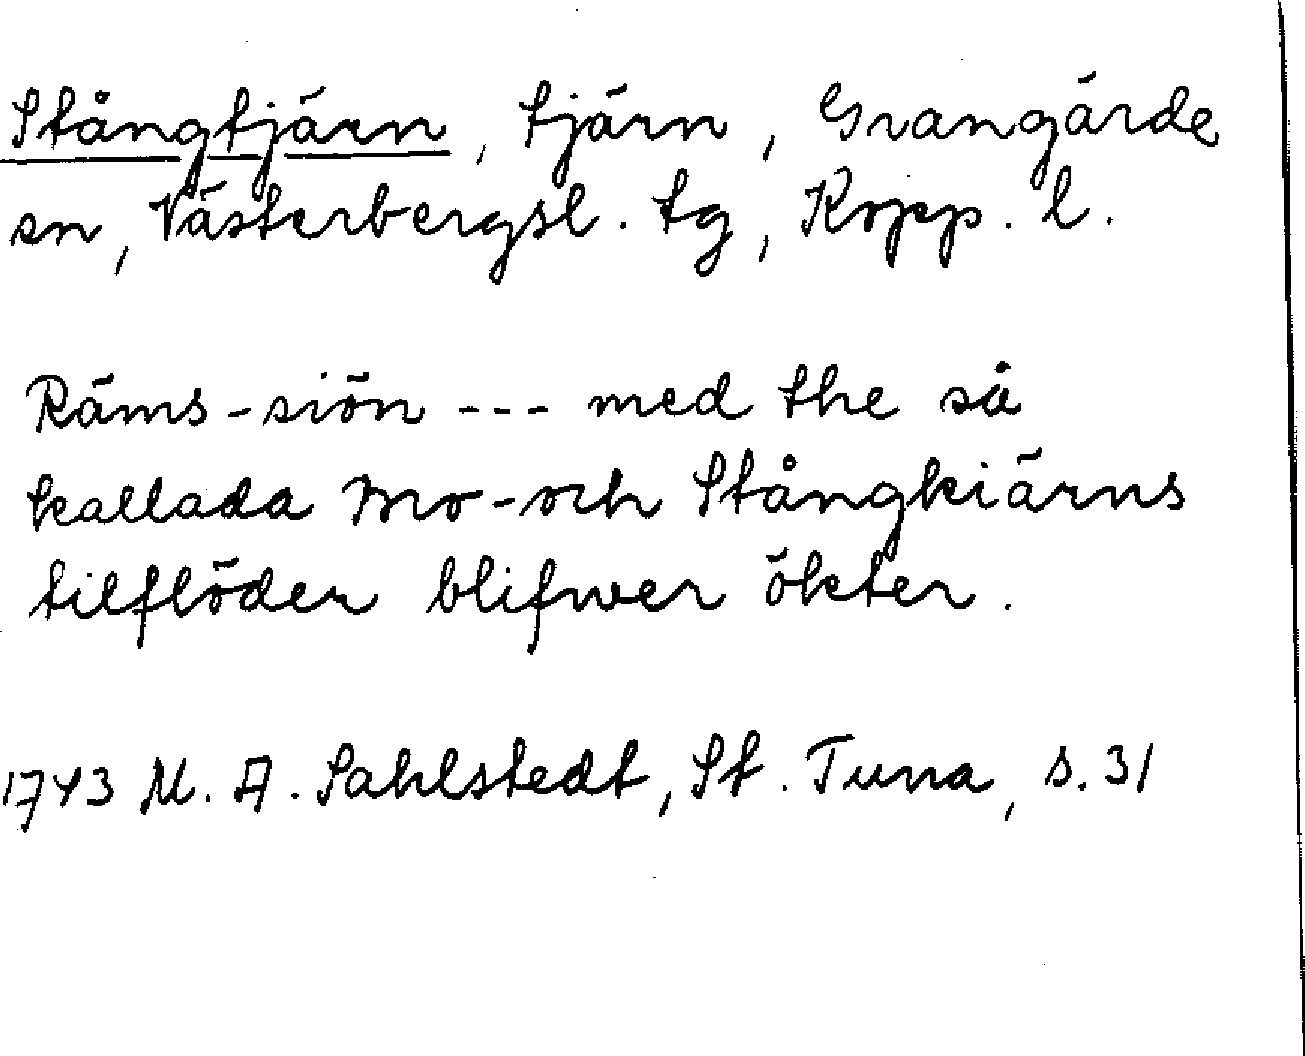 Stångtjärn, tjärn, Grangärde
sn, Västerbergsl. tg, Kopp. l.
Räms-siön --- med the så
kallada Mo-och Stångkiärns
tilflöden blifwer ökter.
1743 M. A. Sahlstedt, St. Tuna, s. 31